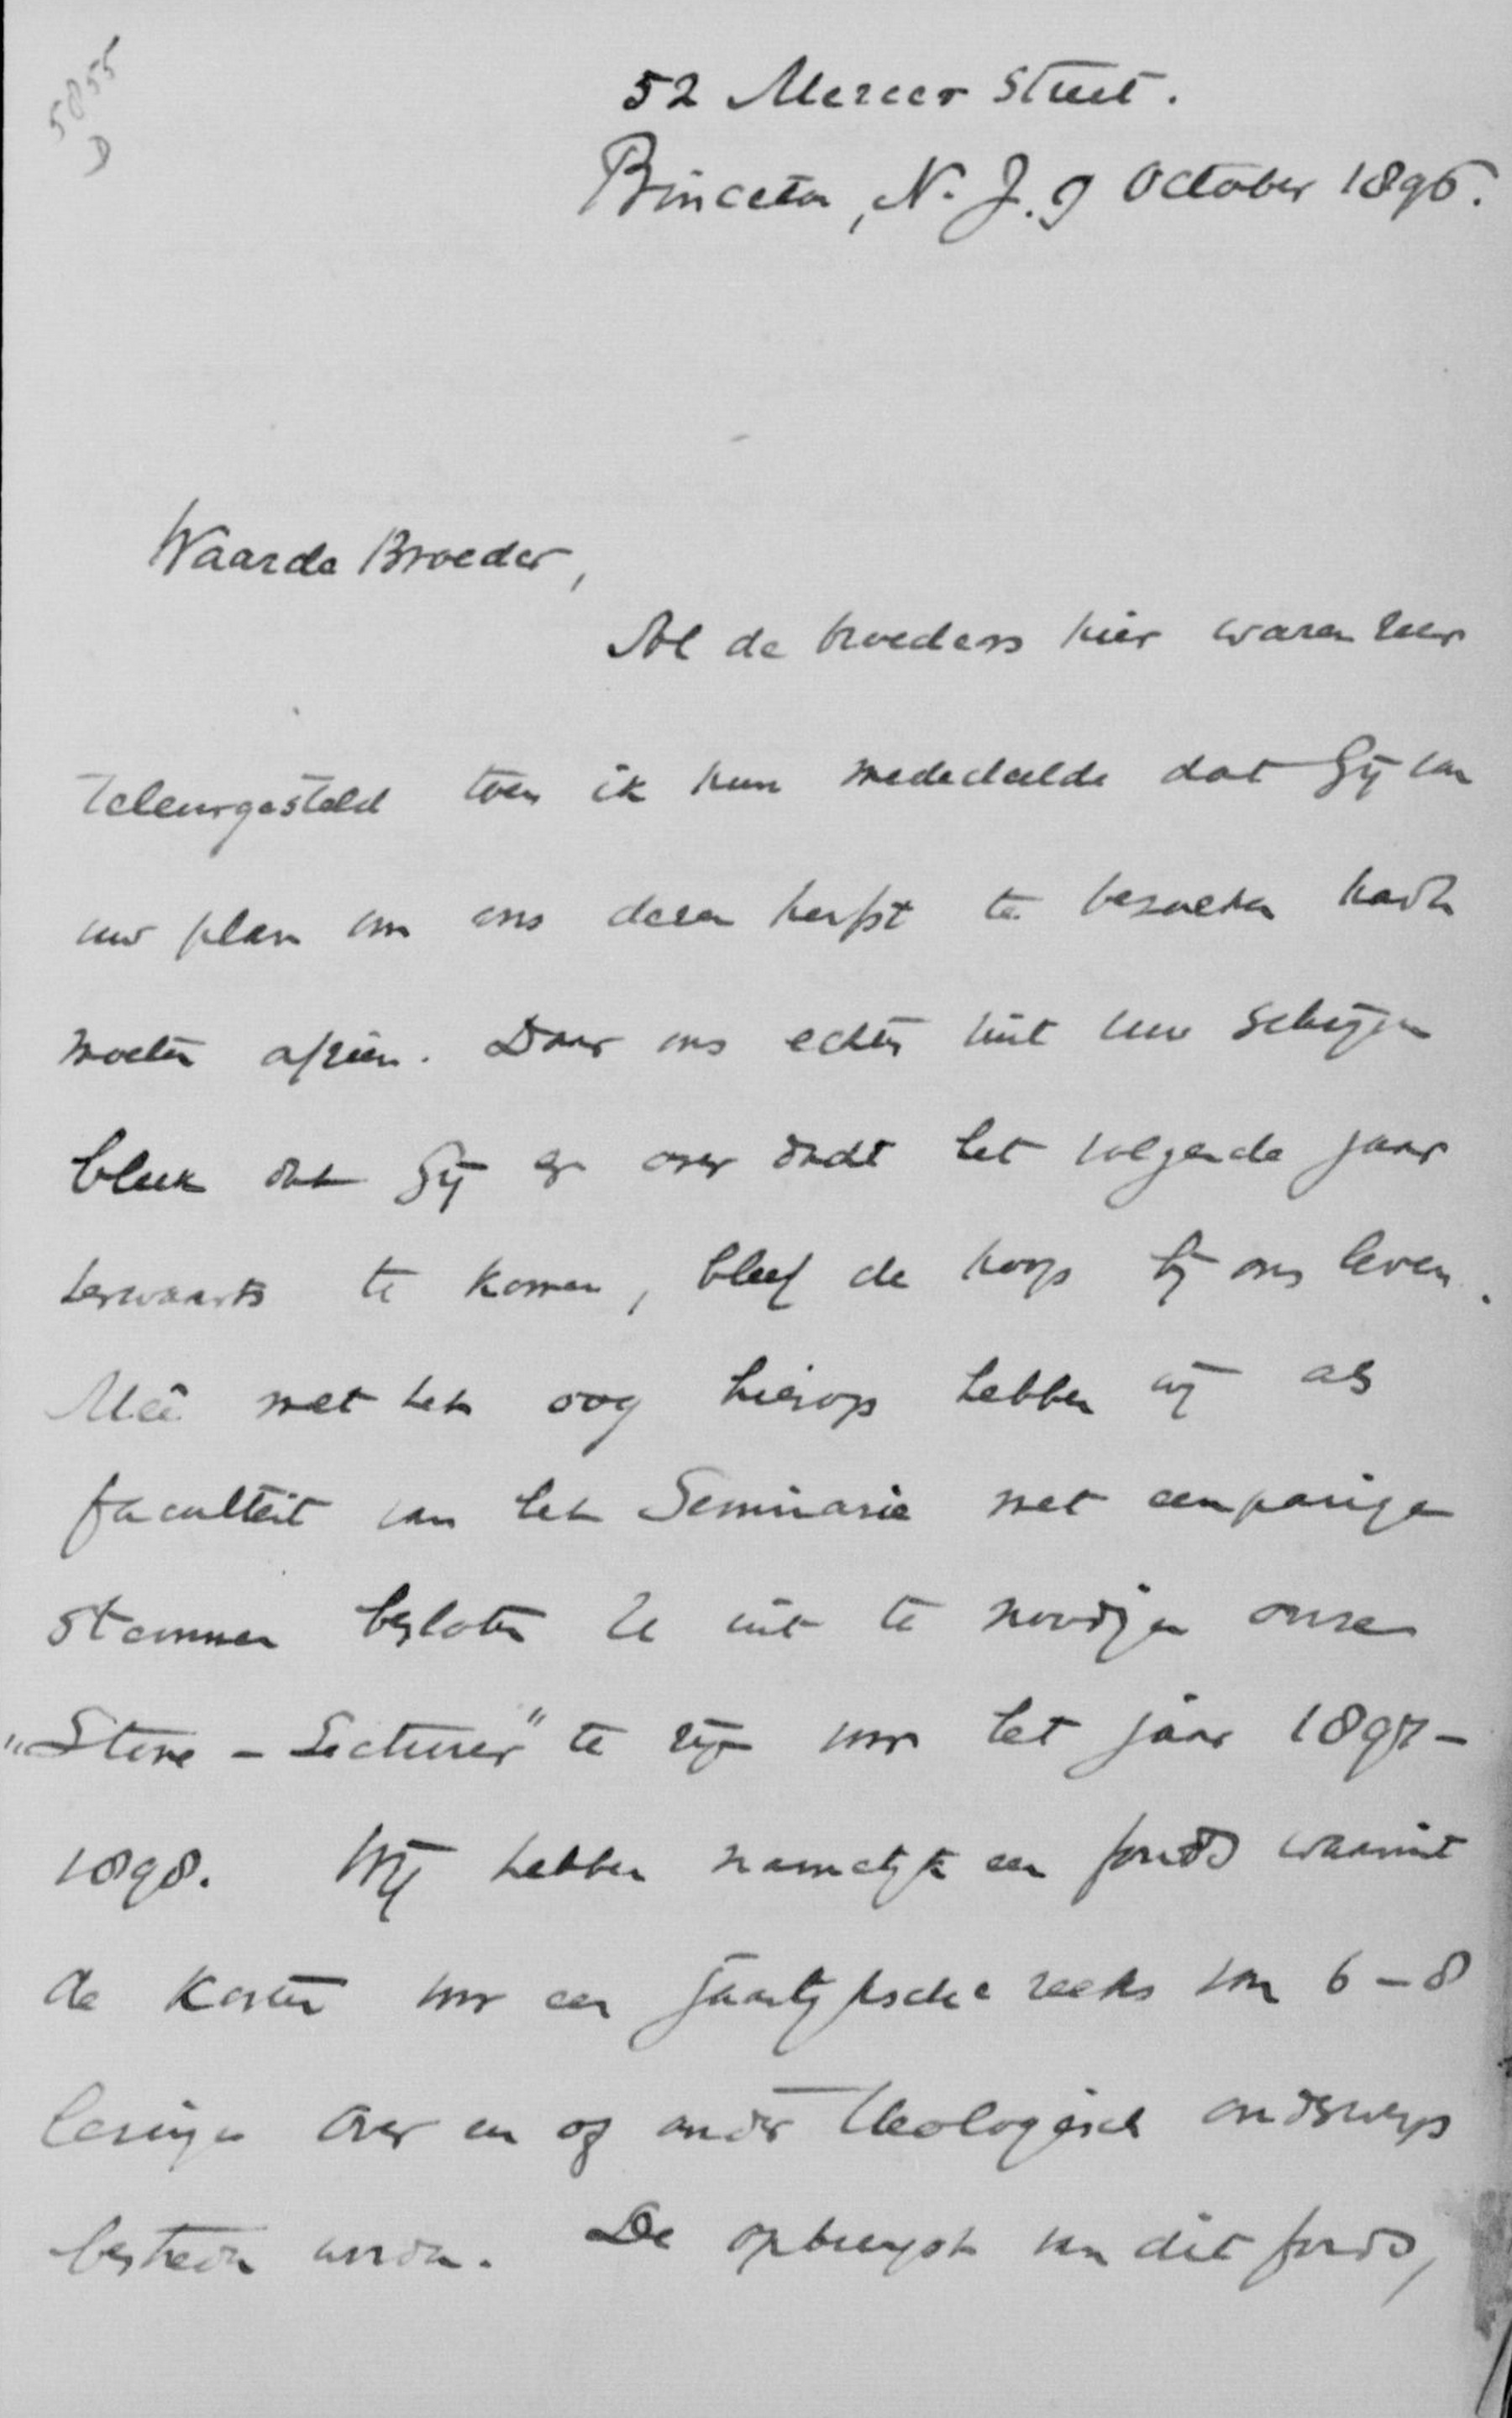 5855
D
52 Mercer Street.
Princeton, N. J. 9 October 1896.
Waarde Broeder,
Al de broeders hier waren zeer
teleurgesteld toen ik hun mededeelde dat Gij van
uw plan om ons dezen herfst te bezoeken hadt
moeten afzien. Daar ons echter uit uw schrijven
bleek dat Gij er over dacht het volgende jaar
herwaarts te komen, bleef de hoop bij ons leven.
Meê met het oog hierop hebben wij als
faculteit van het Seminarie met eenparige
stemmen besloten U uit te noodigen onze
"Stone-Lecturer" te zijn voor het jaar 1897-
1898. Wij hebben namelijk een fonds waaruit
de kosten voor een jaarlijksche reeks van 6-8
lezingen over een of ander theologisch onderwerp
bestreden worden. De opbrengst van dit fonds,